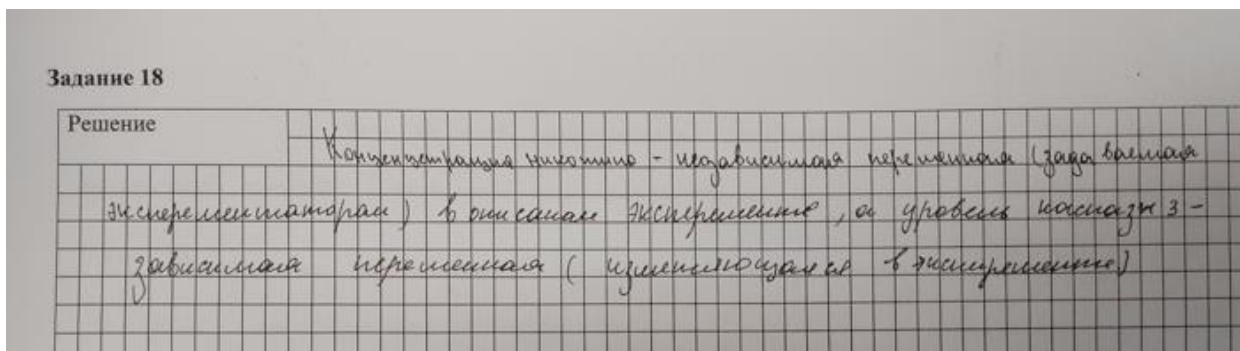 Задание 18
Решение
Концентрация никотина - независимая переменная (задаваемая
эксперементатором) в описанам эксперементе, а уровень каспазы 3 -
зависимая переменная (изменяющаяся в эксперементе)